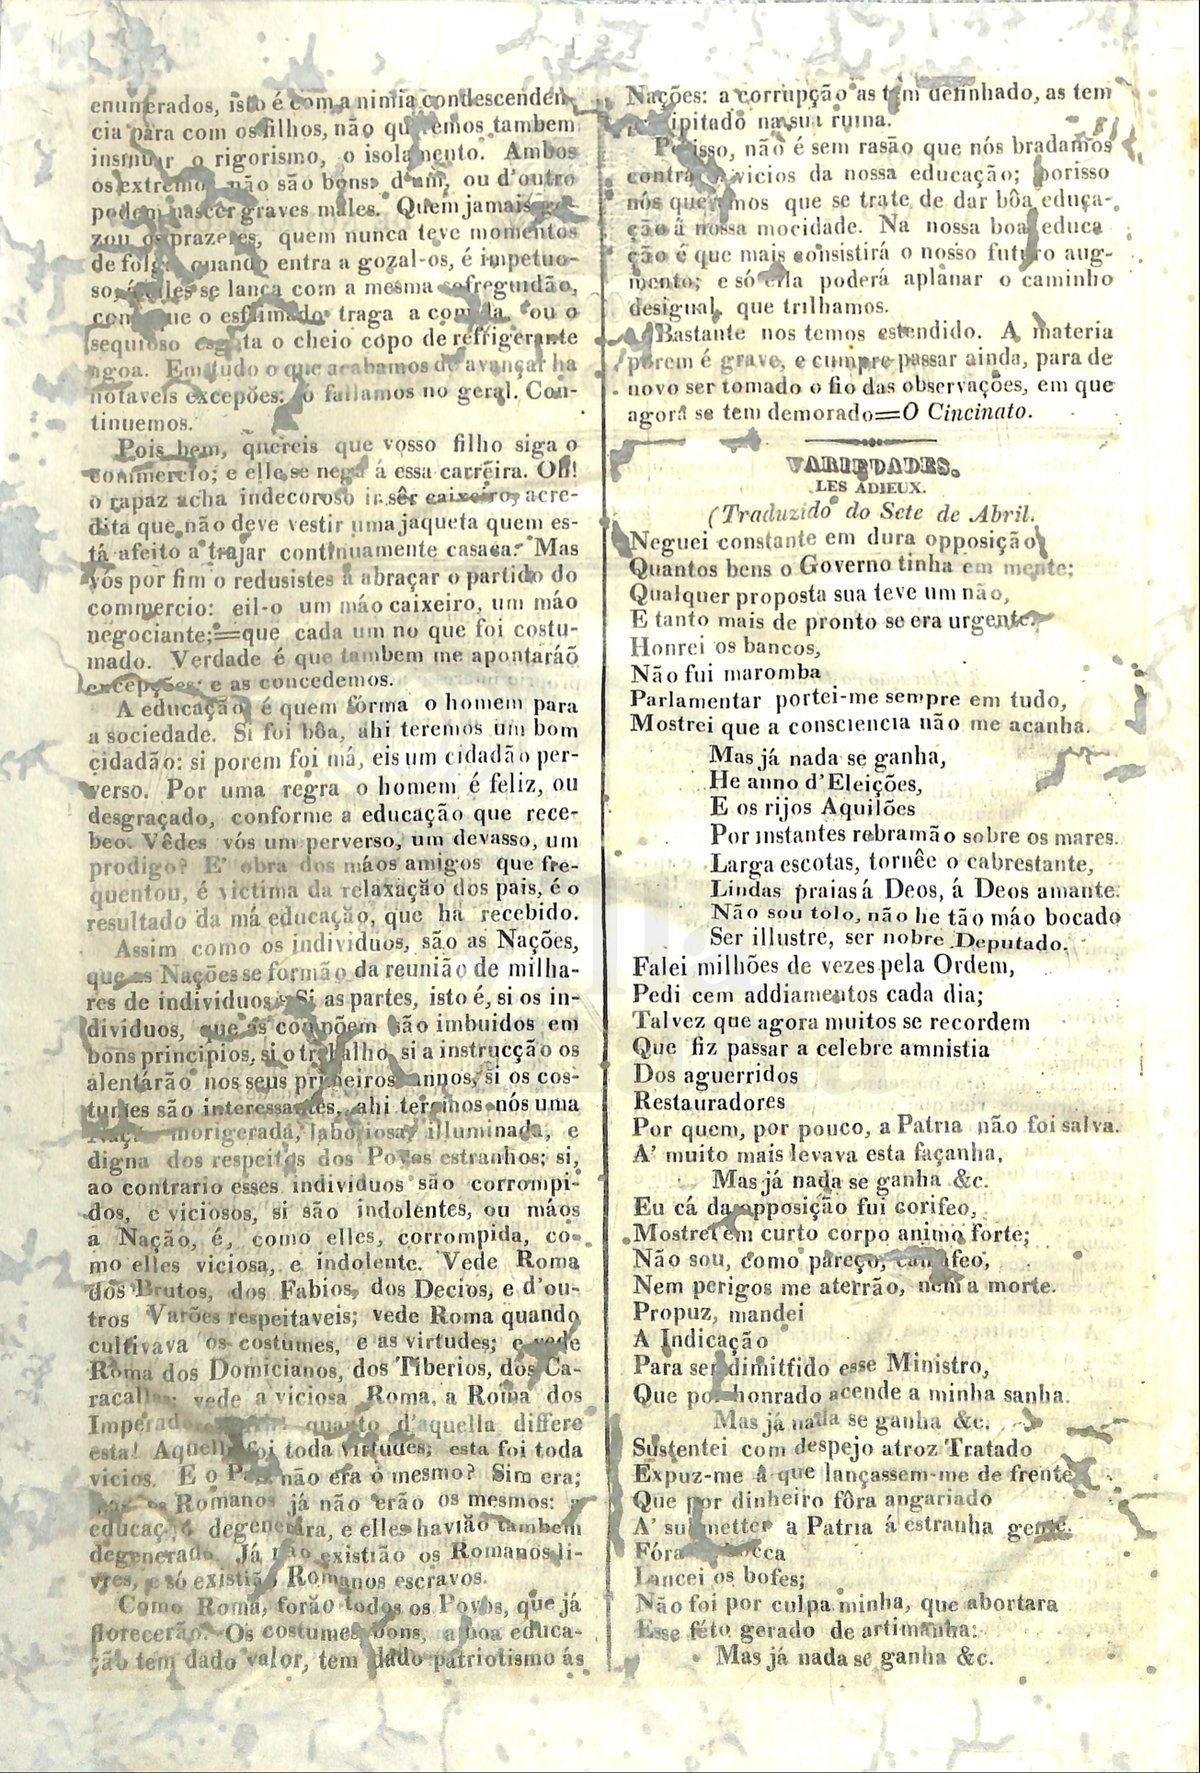 enumerados, isto é com a nimia condescenden-
cia para com os filhos, não queremos tambem
insinuar o rigorismo, o isolamento. Ambos
os extremos não são bons: d'um, ou d'outro
podem nascer graves males. Quem jamais go-
zou os prazeres, quem nunca teve momentos
de folga quando entra a gozal-os, é impetuo-
so, á elles se lança com a mesma sofreguidão,
com que o esfaimado traga a comida, ou o
sequioso esgota o cheio copo de refrigerante
agoa. Em tudo o que acabamos de avançar ha
notaveis excepões: só fallamos no geral. Con-
tinuemos.
Pois bem, quereis que vosso filho siga o
commercio; e elle se nega á essa carreira. Oh!
o rapaz acha indecoroso ir sêr caixeiro, acre-
dita que não deve vestir uma jaqueta quem es-
tá afeito a trajar continuamente casaca. Mas
vós por fim o redusistes a abraçar o partido do
commercio: eil-o um máo caixeiro, um máo
negociante;=que cada um no que foi costu-
mado. Verdade é que tambem me apontaráõ
excepções; e as concedemos.
A educação é quem fórma o homem para
a sociedade. Si foi bôa, ahi teremos um bom
cidadão: si porem foi má, eis um cidadão per-
verso. Por uma regra o homem é feliz, ou
desgraçado, conforme a educação que rece-
beo. Vêdes vós um perverso, um devasso, um
prodigo? E' obra dos máos amigos que fre-
quentou, é victima da relaxação dos pais, é o
resultado da má educação, que ha recebido.
Assim como os individuos, são as Nações,
que as Nações se formão da reunião de milha-
res de individuos. Si as partes, isto é, si os in-
dividuos, que as compõem são imbuidos em
bons principios, si o trabalho, si a instrucção os
alentárão nos seus primeiros annos, si os cos-
tumes são interessantes, ahi teremos nós uma
Nação morigerada, laboriosa, illuminada, e
digna dos respeitos dos Povos estranhos; si,
ao contrario esses individuos são corrompi-
dos, e viciosos, si são indolentes, ou máos
a Nação, é, como elles, corrompida, co-
mo elles viciosa, e indolente. Vede Roma
dos Brutos, dos Fabios, dos Decios, e d'ou-
tros Varões respeitaveis; vede Roma quando
cultivava os costumes, e as virtudes; e vede
Roma dos Domicianos, dos Tiberios, dos Ca-
racallas; vede a viciosa Roma, a Roma dos
Imperadores quanto d'aquella differe
esta! Aquella foi toda virtudes; esta foi toda
vicios. E o Paiz não era o mesmo? Sim era;
mas os Romanos já não erão os mesmos: a
educação degenerára, e elles havião tambem
degenerado. Já não existião os Romanos li-
vres, e só existião Romanos escravos.
Como Roma, forão todos os Povos, que já
florecerão. Os costumes bons, a boa educa-
ção tem dado valor, tem dado patriotismo ás
Nações: a corrupção as tem definhado, as tem
precipitado na sua ruina.
Porisso, não é sem rasão que nós bradamos
contra os vicios da nossa educação; porisso
nós queremos que se trate de dar bôa educa-
ção á nossa mocidade. Na nossa boa educa
ção é que mais consistirá o nosso futuro aug-
mento; e só ella poderá aplanar o caminho
desigual, que trilhamos.
Bastante nos temos estendido. A materia
porem é grave, e cumpre passar ainda, para de
novo ser tomado o fio das observações, em que
agora se tem demorado=O Cincinato.
VARIEDADES.
LES ADIEUX.
(Traduzido do Sete de Abril.
Neguei constante em dura opposição
Quantos bens o Governo tinha em mente;
Qualquer proposta sua teve um não,
E tanto mais de pronto se era urgente.
Honrei os bancos,
Não fui maromba
Parlamentar portei-me sempre em tudo,
Mostrei que a consciencia não me acanha.
Mas já nada se ganha,
He anno d'Eleições,
E os rijos Aquilões
Por instantes rebramão sobre os mares.
Larga escotas, tornêe o cabrestante,
Lindas praias á Deos, á Deos amante.
Não sou tolo, não he tão máo bocado
Ser illustre, ser nobre Deputado.
Falei milhões de vezes pela Ordem,
Pedi cem addiamentos cada dia;
Talvez que agora muitos se recordem
Que fiz passar a celebre amnistia
Dos aguerridos
Restauradores
Por quem, por pouco, a Patria não foi salva.
A' muito mais levava esta façanha,
Mas já nada se ganha &c.
Eu cá da opposição fui corifeo,
Mostrei em curto corpo animo forte;
Não sou, como pareço,
Nem perigos me aterrão, nem a morte.
Propuz, mandei
A Indicação
Para ser dimittido esse Ministro,
Que por honrado acende a minha sanha.
Mas já nada se ganha &c.
Sustentei com despejo atroz Tratado
Expuz-me á que lançassem-me de frente
Que por dinheiro fôra angariado
A' submetter a Patria á estranha gente.
Fóra bocca
Lancei os bofes;
Não foi por culpa minha, que abortara
Esse féto gerado de artimanha:
Mas já nada se ganha &c.